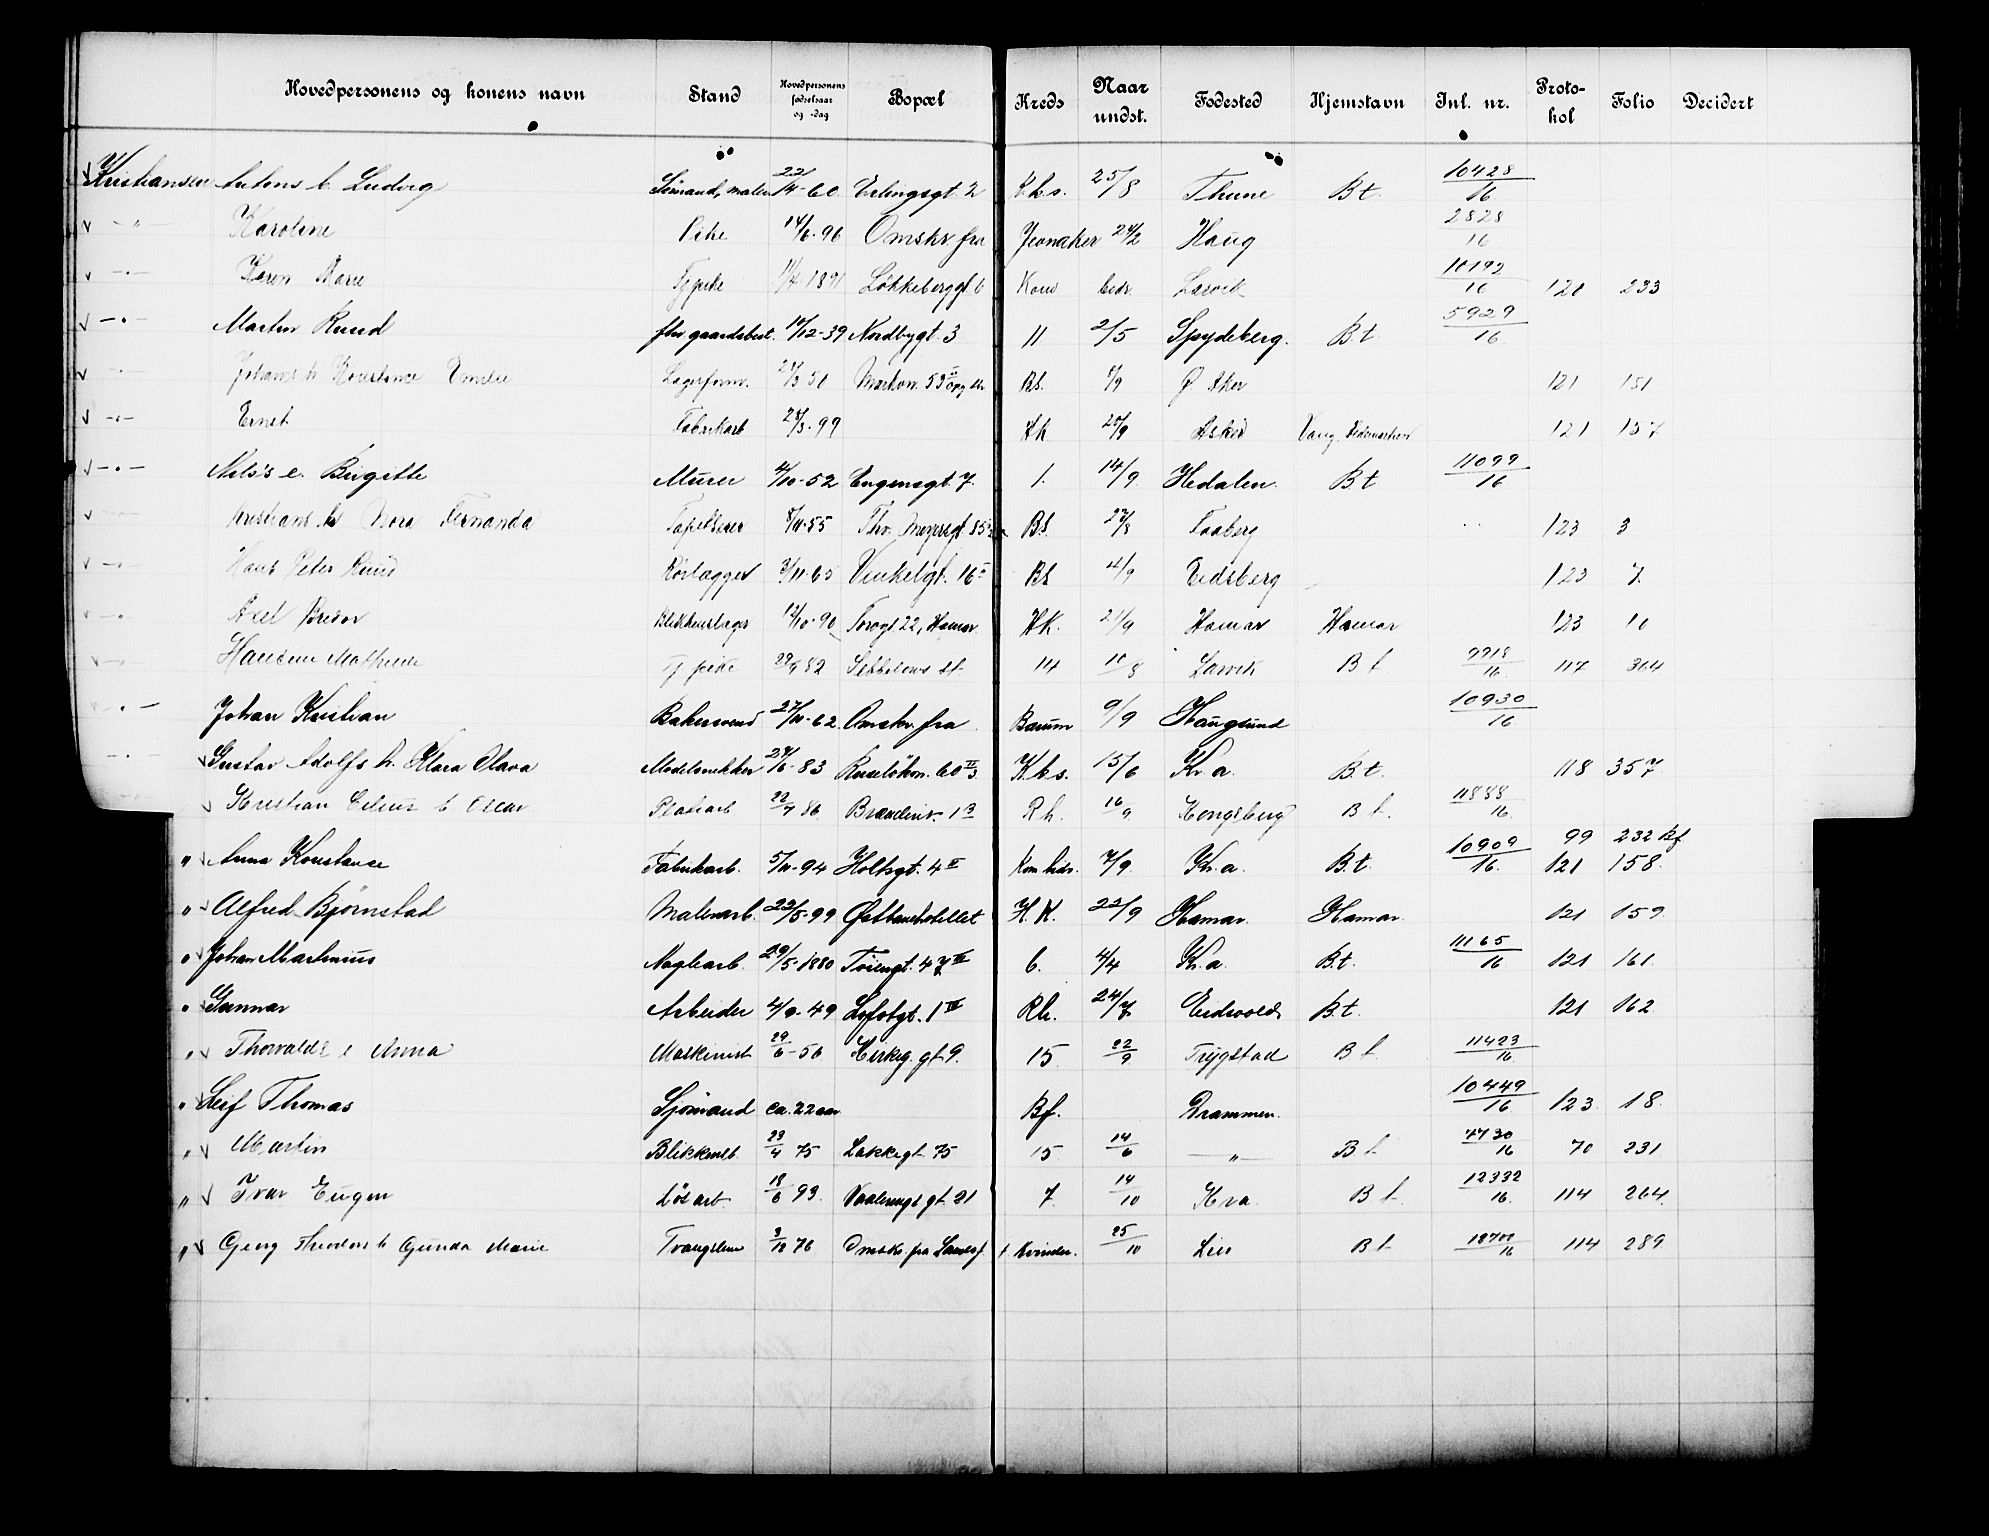 Hovedpersonens og konens navn Stand Hovedpersonens fødselsaar og -dag Bopæl Kreds Naar undst. Fødested Hjemstavn Inl. nr. Protokol Folio Decidert
Kristiansen Antons b. Ludvig Sömand, maler 22/4-60 Erlingsgt. 2 K.k.s. 25/8 Thune B.t. 10428/16
-"- Karoline Pike 14/6-96 Omskr fra Jevnaker 24/2 Haug 2828/16
-"- Karen Marie Tj.pike 1891 Løkkeberggt. 6 Kom bidr. Larvik 10192/16 121 233
-"- Martin Ruud fhv gaardsbest. 10/12-39 Nordbygt. 3 11 2/5 Spydeberg. B.t. 5929/16
-"- Johans h Konstance Emilie Lagerform. 51 Markvn. 53 opg. B.S. 1/9 Ø. Aker 121 151
-"- Ernst Fabrikarb 24/3-99 H.K 20/9 Asker Vang, Hedemarken 121 157
-"- Nils's e. Birgitte Murer 4/10-52 Eugeniegt. 7. 1. 14/9 Hedalen. B.t. 11099/16
-"- Kristians h Nora Fernanda Tapetserer 8/11-55 Thv. Meyersgt. 85 B.S. 23/8 Faaberg 123 3
-"- Hans Peter Ruud Rörlægger 3/11-65 Vinkelgt. 16 B.S 4/9 Eidsberg 123 7.
-"- Axel Bredor Blikkenslager 12/10-90 Torvgt 22, Hamar H.K. 21/9 Hamar Hamar 123 10
-"- Hansine Mathilde Tj pike 29/9 82 Sibbelows st. 14 10/8 Larvik B t 9918/16 117 364
-"- Johan Kristian Bakersvend 27/10-62 Omskr. fra Bærum 9/9 Haugsund 10930/16
-"- Gustav Adolfs h. Klara Olava Modelsnekker 24/6-83 Ruselökvn. 60 II/3 K.k.s. 15/6 Kr.a. B.t. 118 357
Kristian Celius b Oscar Platearb 22/7 86 Brænderiv. 1 B R.h. 16/9 Kongsberg B.t. 11888/16
" Anna Konstanse Fabrikarb. 5/11-94 Holtsgt. 4 II Kom. bidr. 7/9 Kr.a. B.t. 10909/16 99 121 232 Bf 158
" Alfred Bjørnstad Malerarb. 23/5-99 Østbanehotellet H.K. 22/9 Hamar. Hamar. 121 159
" Johan Martinius Naglearb. 29/5-1880 Töiengt. 47 IV 6. 4/4 Kr.a. B.t. 11165/16 121 161.
" Gunnar Arbeider 4/9-49 Lofotgt. 1 IV R.h. 24/7 Eidsvold B.t. 121 162
" Thorvalds e Anna Maskinist 29/6-56 Herleg. gt 9. 15 22/9 Trygstad B t 11423/16
" Leif Thomas Sjömand ca. 22 aar Bf. Drammen. 10449/16 123 18
" Martin Blikkensl. 23/4 75 Lakkegt 75 15 14/6 -"- B t 7730/16 70 231
" Ivar Eugen Lös arb 18/6 93. Vaalerengs gt 21 7 14/10 Kra B t. 12332/16 114 264
" Georg Theodors h Gunda Marie Tvangslem 3/12 76 Omsk. fra Landsf. f. Kvinder. 25/10 Lier B t 114 289